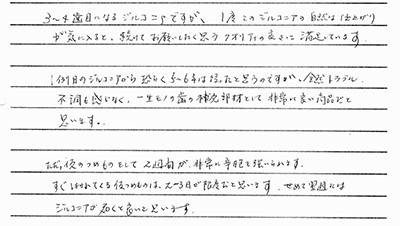 3〜4歯目になるジルコニアですが、1度このジルコニアの自然な仕上がり
が気に入ると、続けてお願いしたく思うクオリティの良さに満足しています。
1例目のジルコニアから恐らく5〜6年は経ったと思うのですが、全然トラブル
不調も感じなく、一生モノの歯の補完部材として非常に良い商品だと
思います。
ただ、仮のつめものとして2週間が非常に辛抱を強いられます。
すぐ取れてくる仮つめものは、2〜3日が限度だと思います。せめて翌週には
ジルコニアが届くと良いと思います。